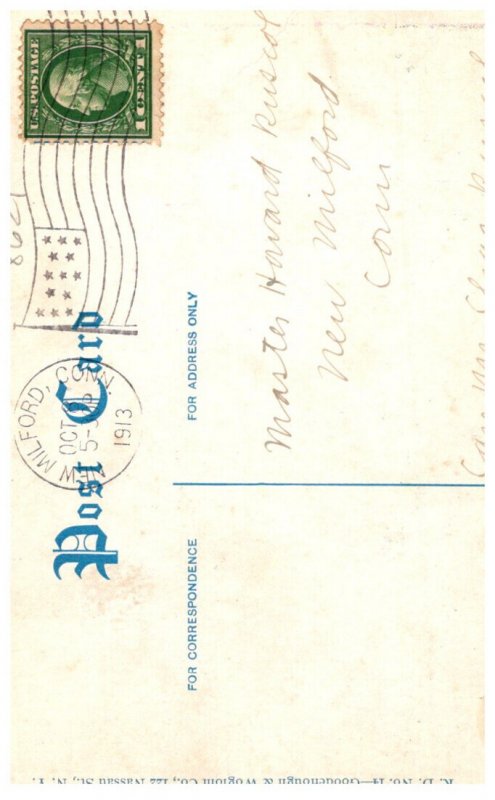 U.S. POSTAGE
1 CENT 1
8621
NEW MILFORD, CONN.
OCT
5-
1913
Post Card
FOR CORRESPONDENCE
FOR ADDRESS ONLY
Master Howard Ruscoe
New Milford
Conn
Care Mrs
R. D. No. 14—Goodenough & Woglom Co., 122 Nassau St., N. Y.